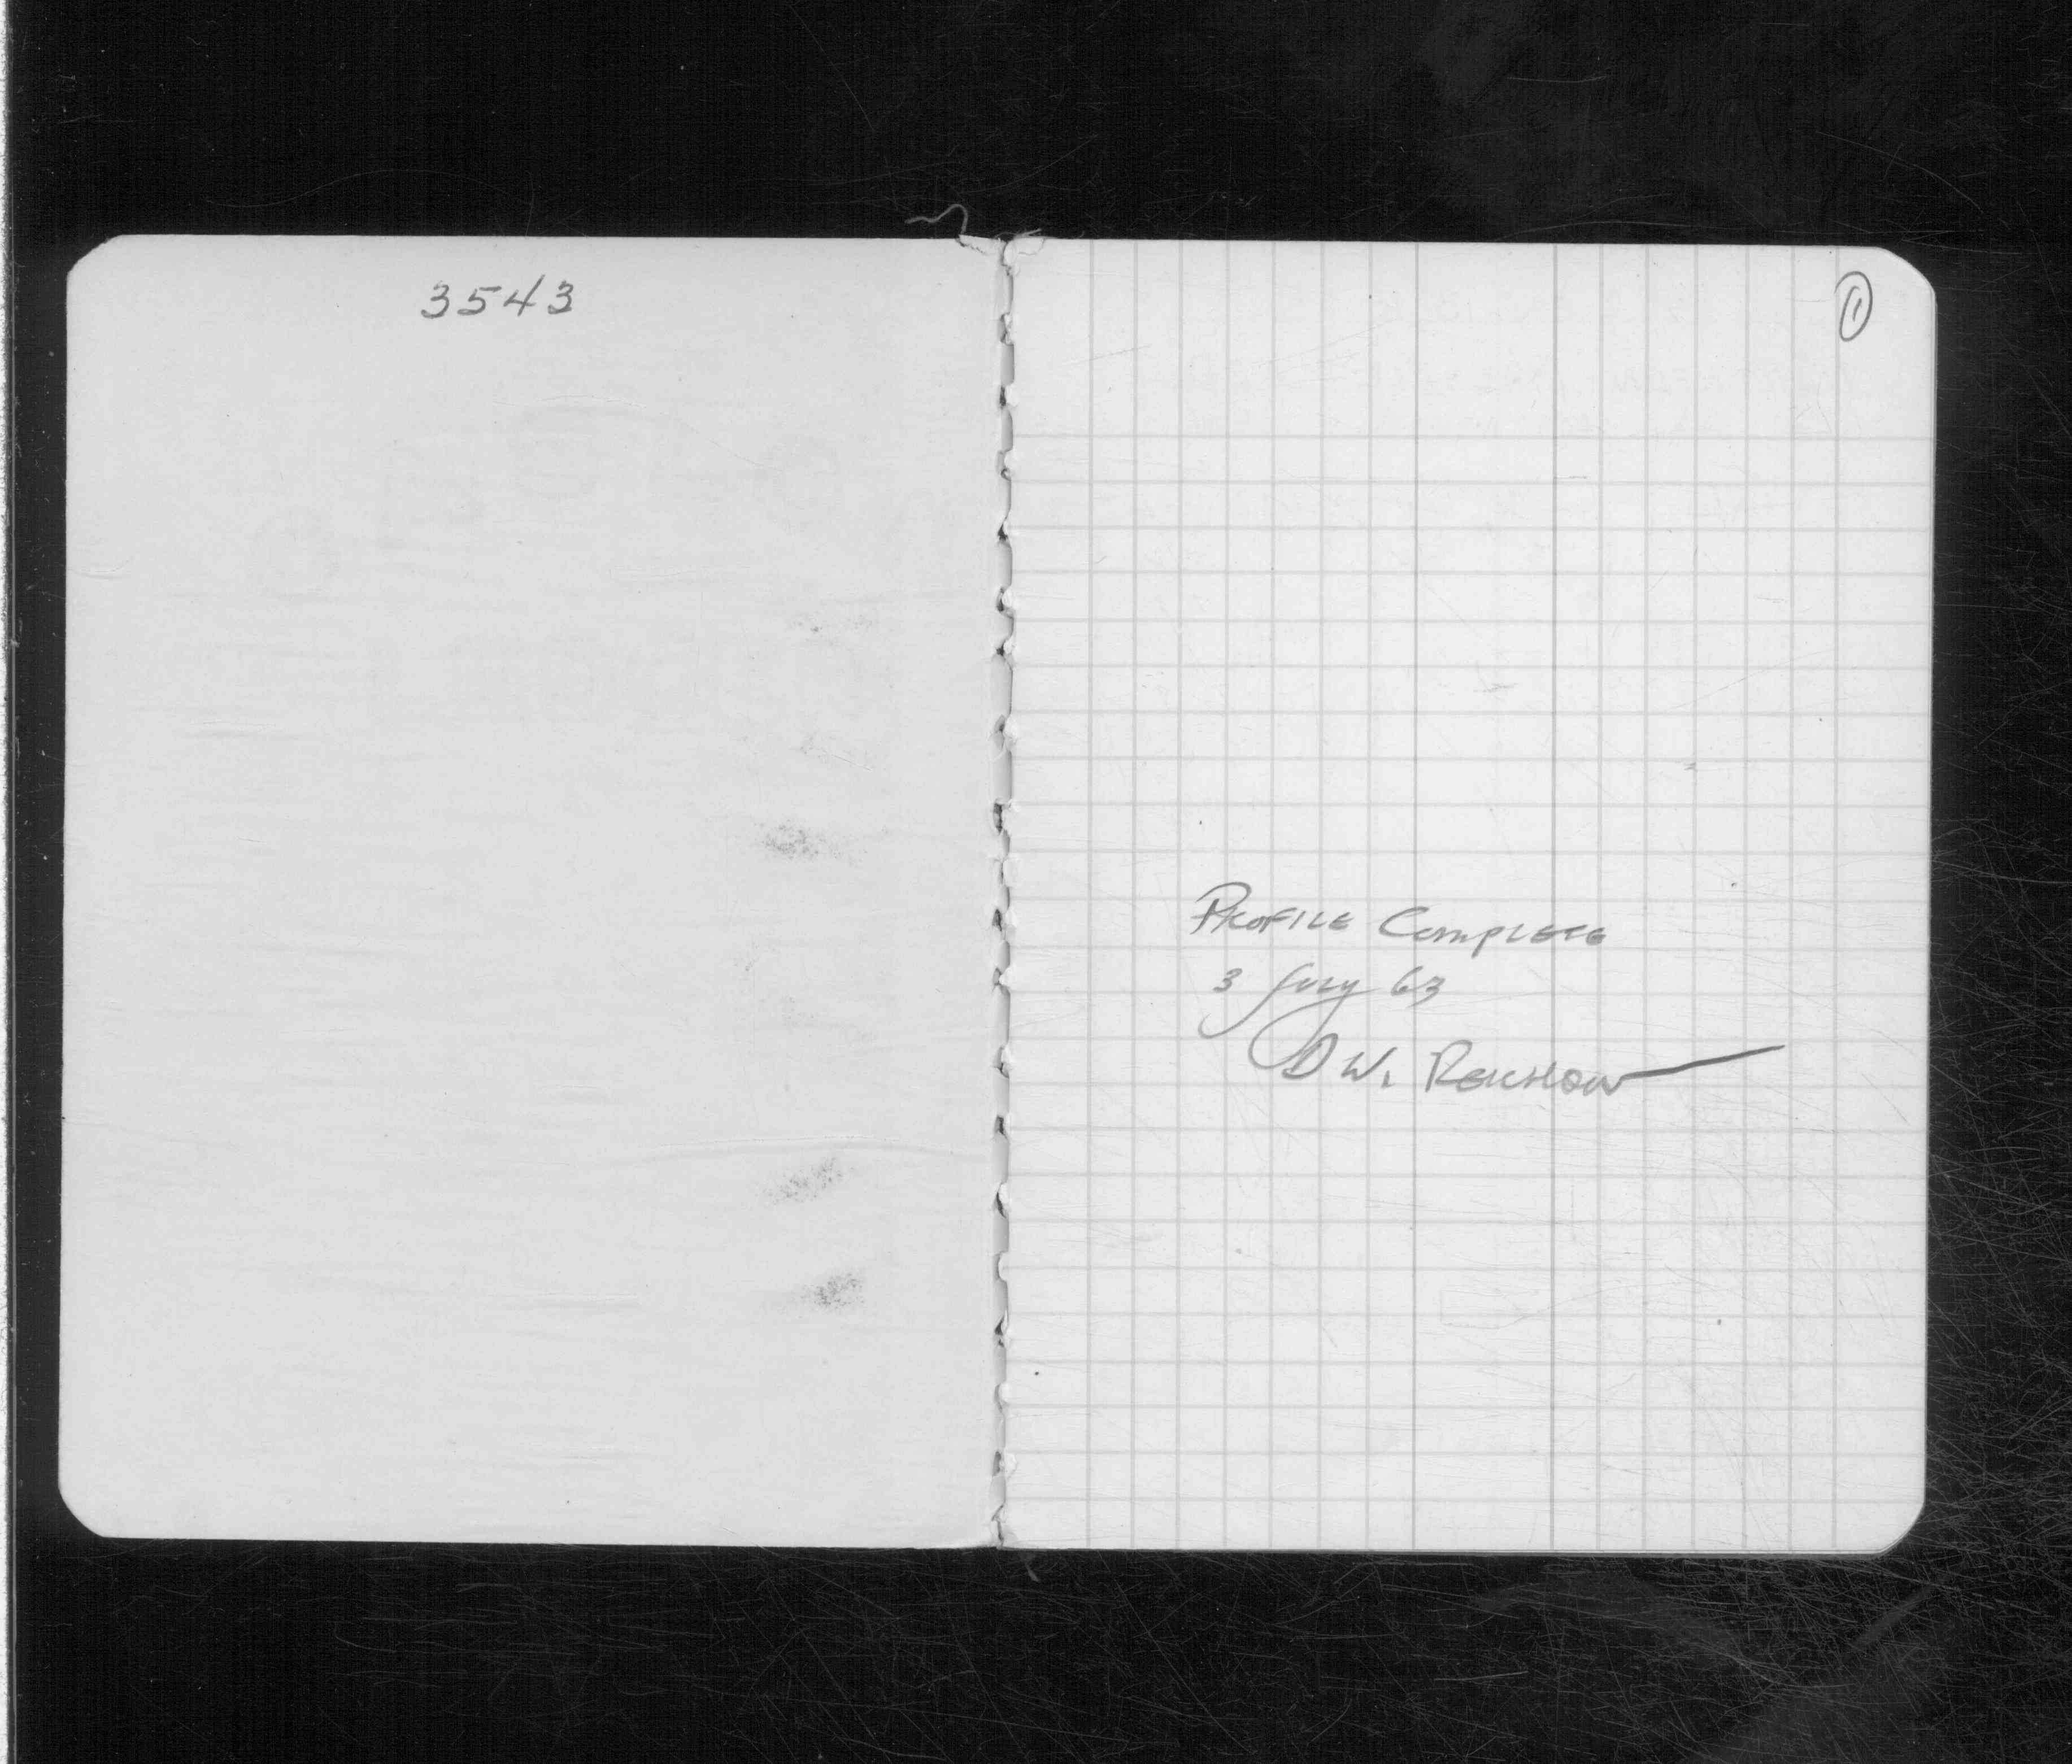 3543
1
PROFILE COMPLETE
3 July 63
D W.